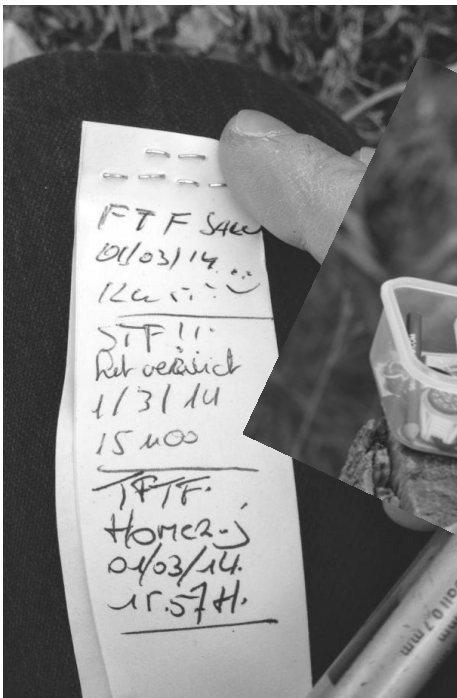 FTF
01/03/14
STF !!
het verdict
1/3/14
15 u00
TFTF.
Homer
01/03/14.
15.57H.
0,7 mm